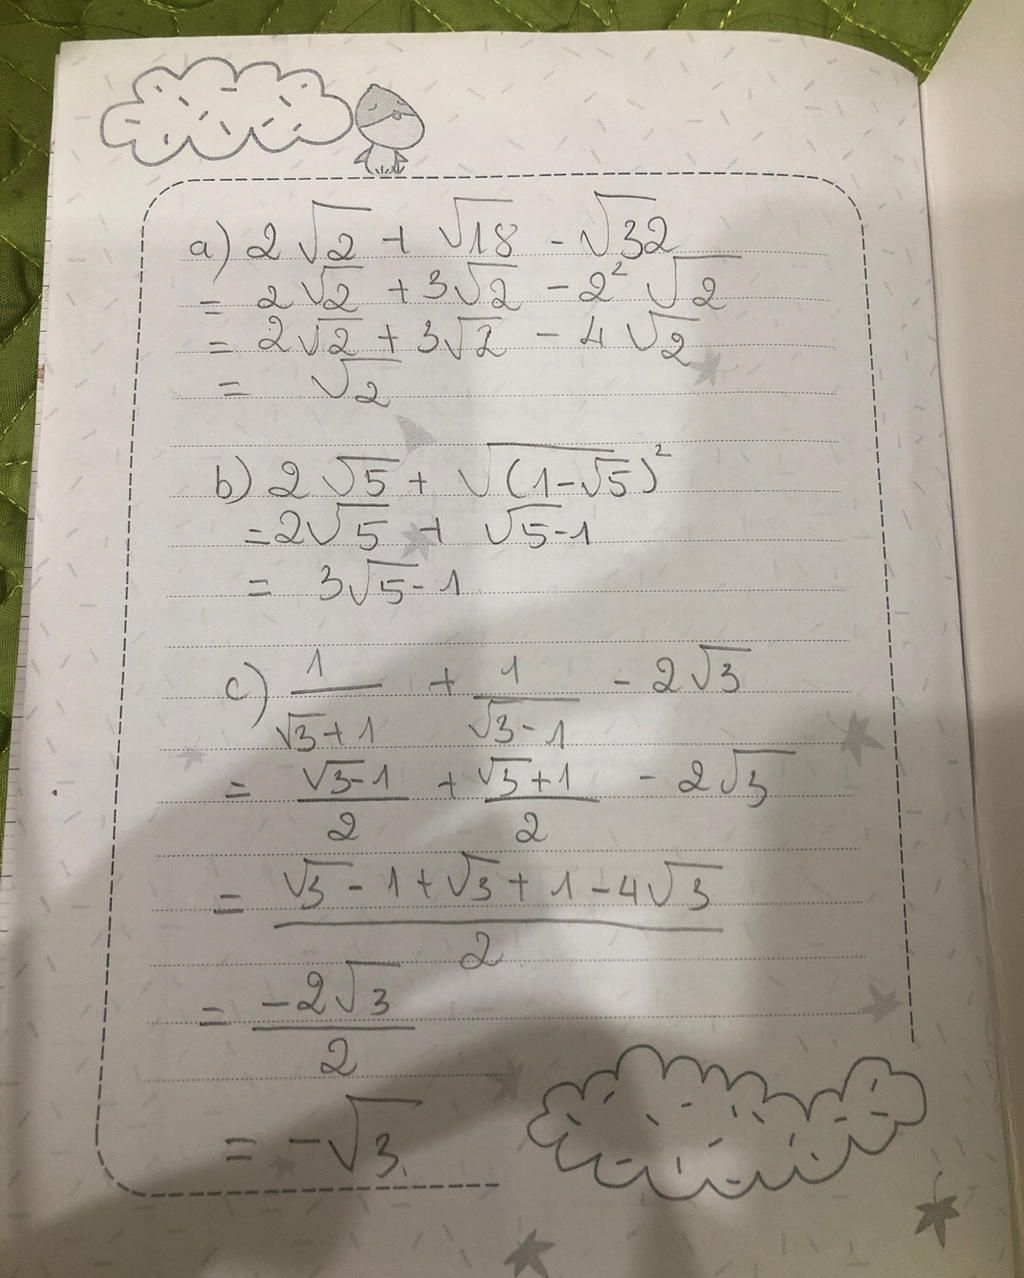 a) 2√2 + √18 - √32
= 2√2 + 3√2 - 2²√2
= 2√2 + 3√2 - 4√2
= √2
b) 2√5 + √(1-√5)²
= 2√5 + √5-1
= 3√5-1
c) 1/(√3+1) + 1/(√3-1) - 2√3
= (√3-1)/2 + (√3+1)/2 - 2√3
= (√3-1+√3+1-4√3)/2
= (-2√3)/2
= -√3